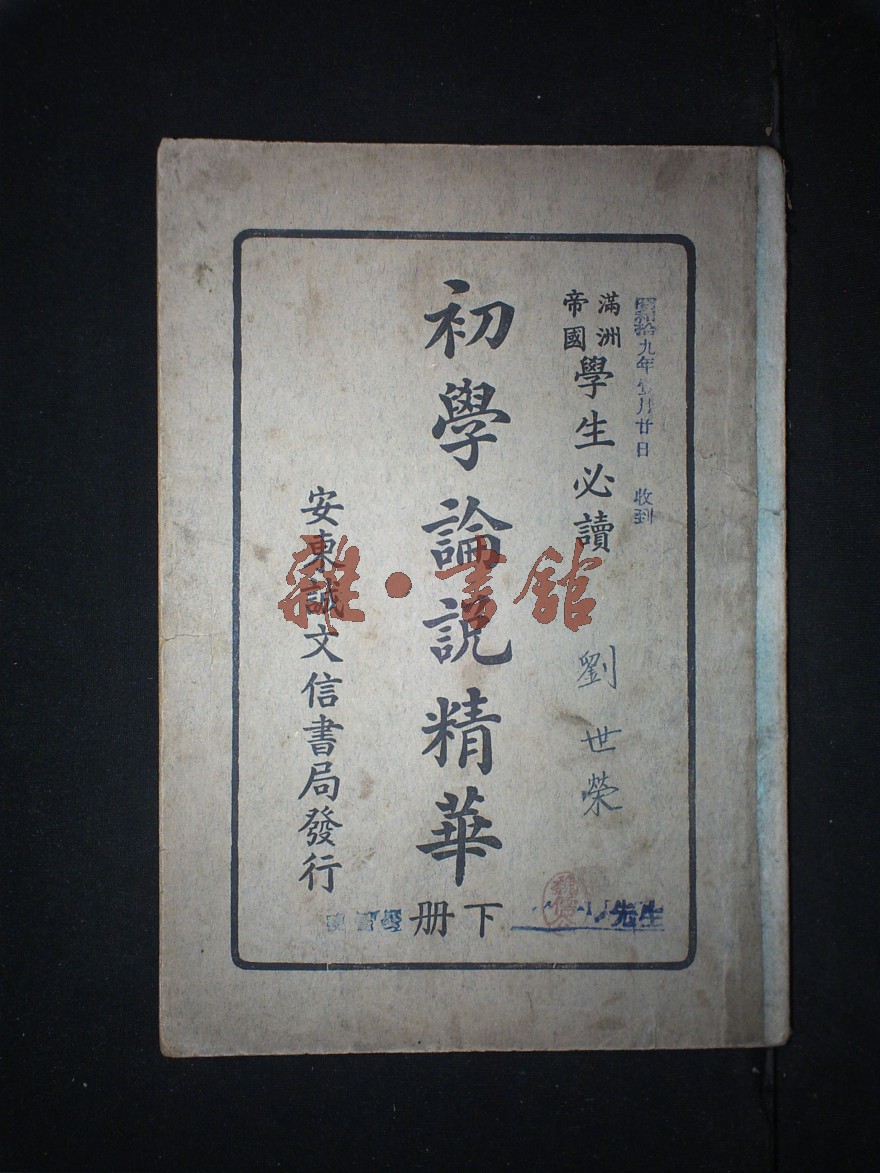 昭和拾九年壹月廿日 收到
滿洲帝國學生必讀
劉世榮
先生
初學論說精華
下册
安東誠文信書局發行
雜·書館